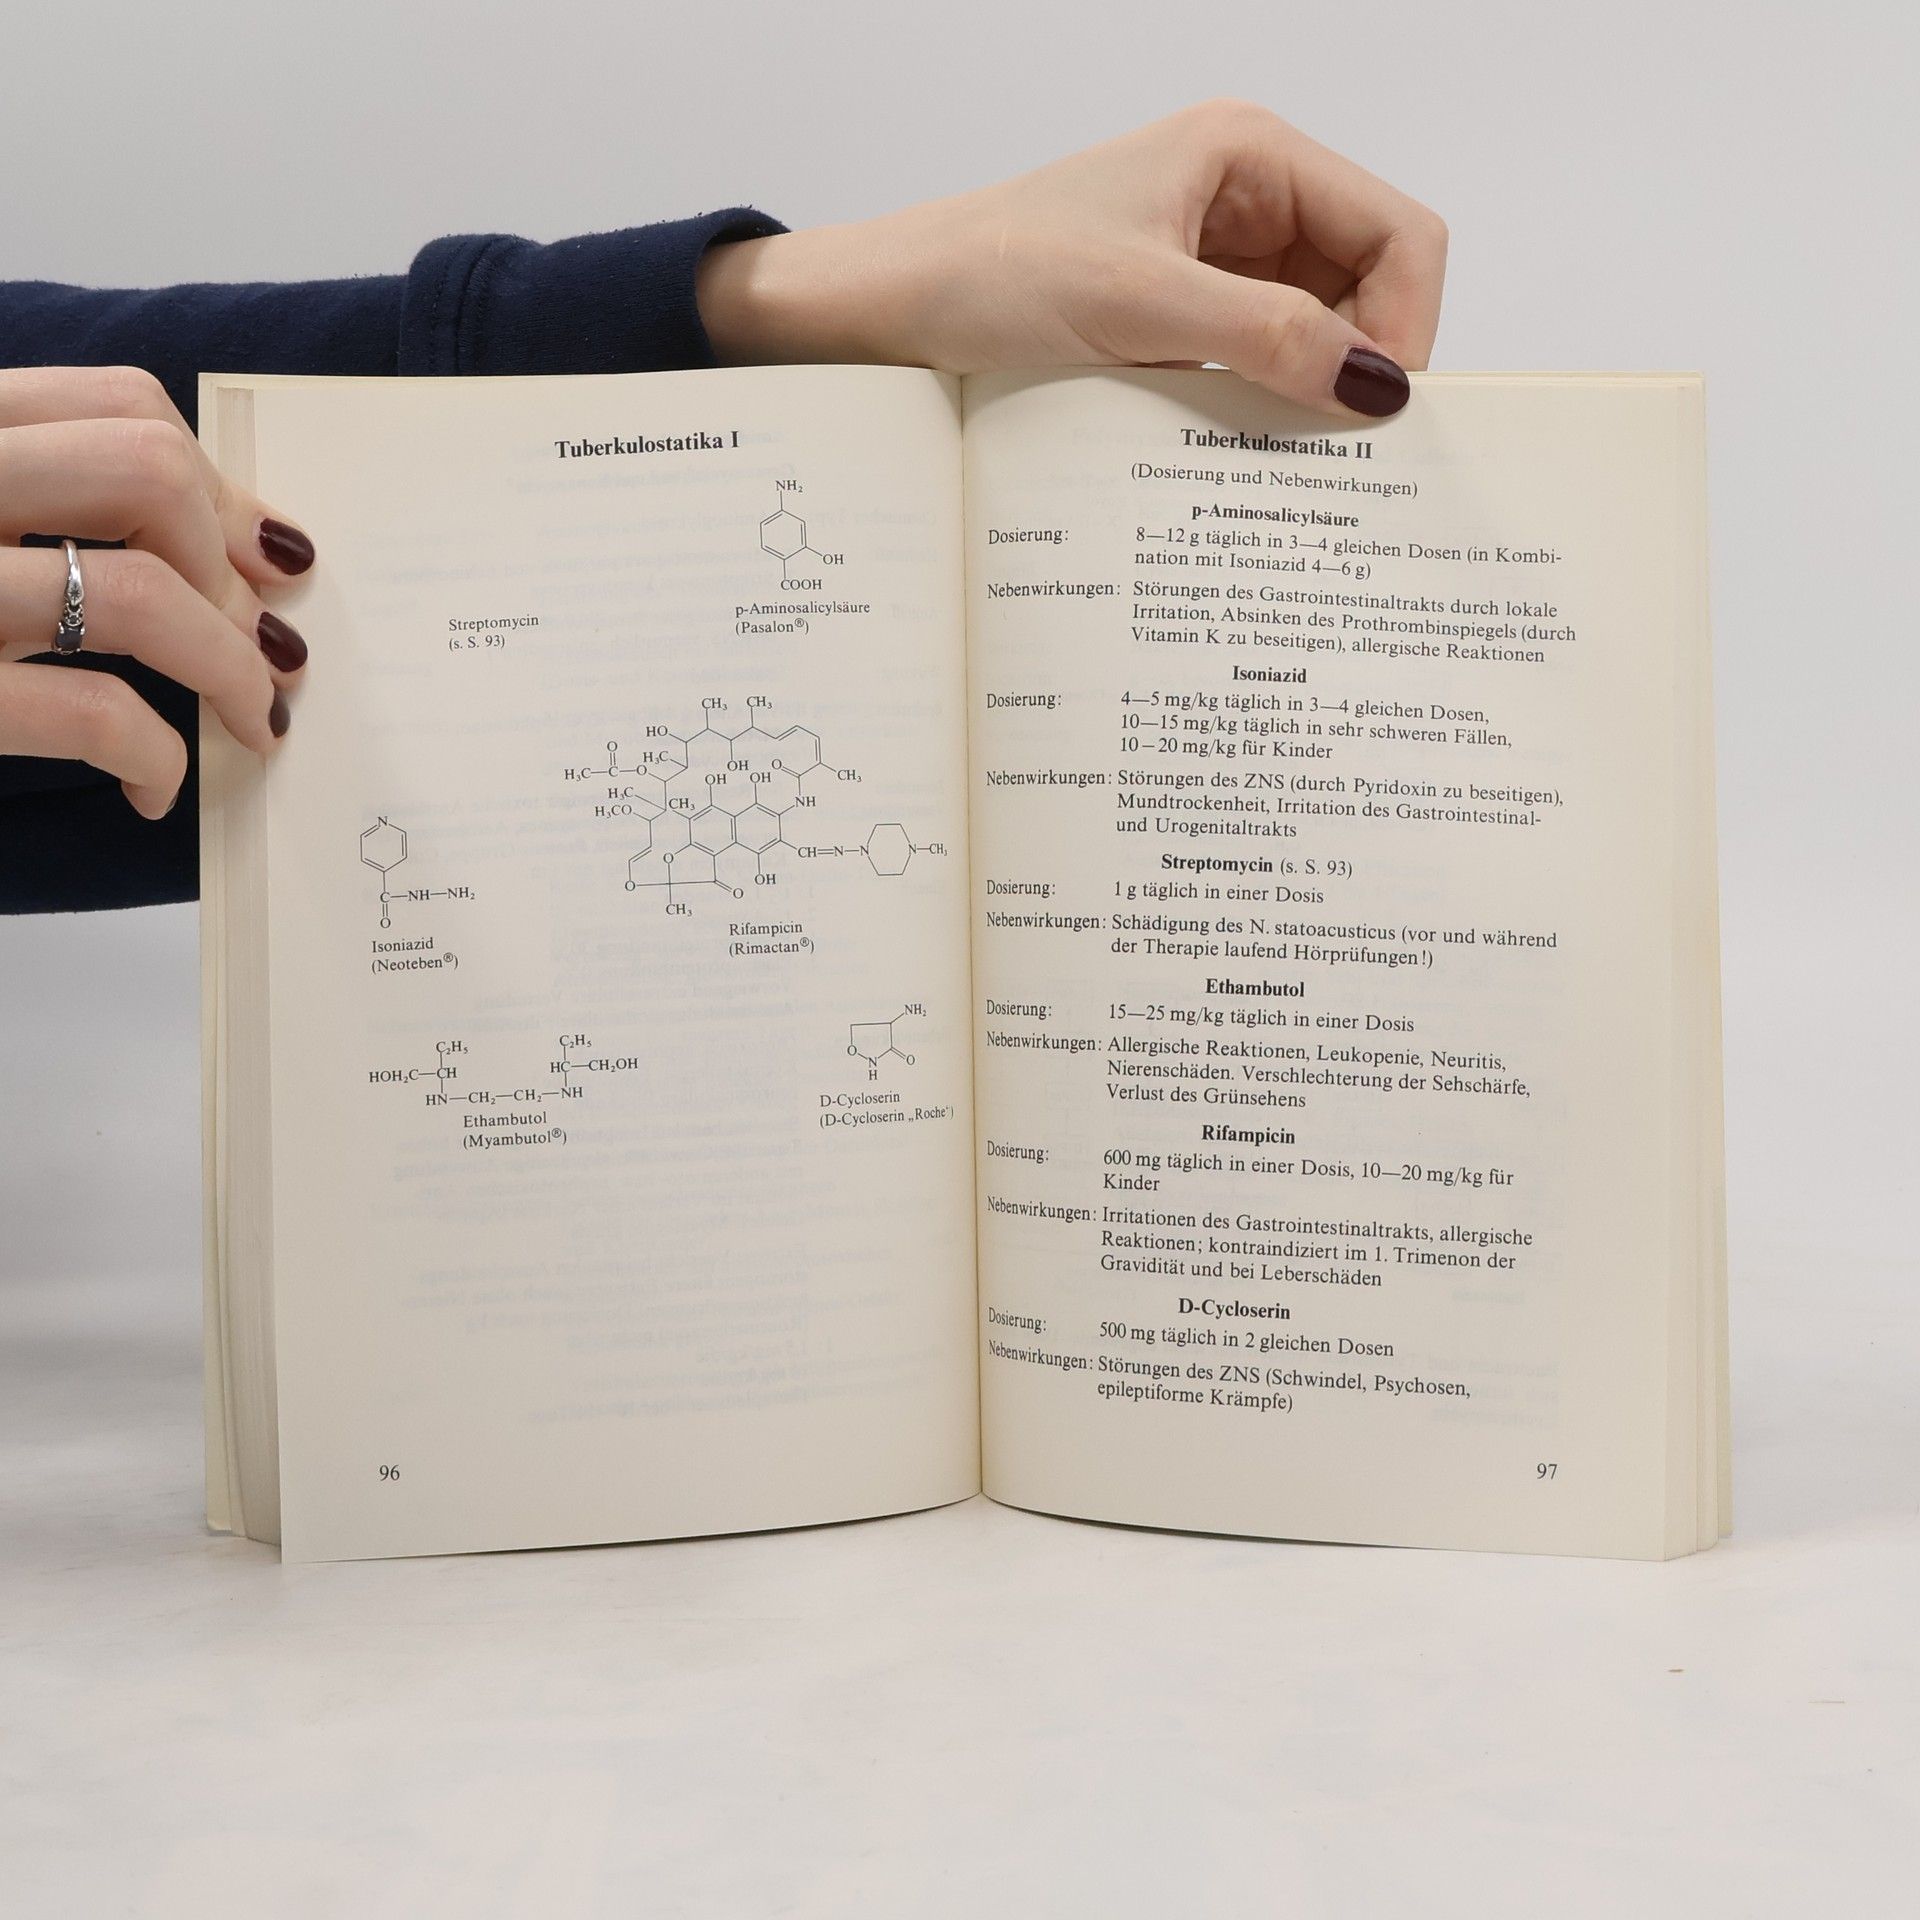 Tuberkulostatika I
NH₂
OH
COOH
Streptomycin
(s. S. 93)
p-Aminosalicylsäure
(Pasalon®)
CH₃ CH₃
HO
O H₃C OH O
H₃C—C—O OH OH CH₃
H₃C CH₃ NH
H₃CO
O CH=N—N N—CH₃
O O OH
CH₃
N
C—NH—NH₂
O
Isoniazid
(Neoteben®)
Rifampicin
(Rimactan®)
C₂H₅ C₂H₅
HOH₂C—CH HC—CH₂OH
HN—CH₂—CH₂—NH
Ethambutol
(Myambutol®)
NH₂
O O
N
H
D-Cycloserin
(D-Cycloserin „Roche“)
96
Tuberkulostatika II
(Dosierung und Nebenwirkungen)
p-Aminosalicylsäure
Dosierung: 8—12 g täglich in 3—4 gleichen Dosen (in Kombi-
nation mit Isoniazid 4—6 g)
Nebenwirkungen: Störungen des Gastrointestinaltrakts durch lokale
Irritation, Absinken des Prothrombinspiegels (durch
Vitamin K zu beseitigen), allergische Reaktionen
Isoniazid
Dosierung: 4—5 mg/kg täglich in 3—4 gleichen Dosen,
10—15 mg/kg täglich in sehr schweren Fällen,
10–20 mg/kg für Kinder
Nebenwirkungen: Störungen des ZNS (durch Pyridoxin zu beseitigen),
Mundtrockenheit, Irritation des Gastrointestinal-
und Urogenitaltrakts
Streptomycin (s. S. 93)
Dosierung: 1 g täglich in einer Dosis
Nebenwirkungen: Schädigung des N. statoacusticus (vor und während
der Therapie laufend Hörprüfungen!)
Ethambutol
Dosierung: 15—25 mg/kg täglich in einer Dosis
Nebenwirkungen: Allergische Reaktionen, Leukopenie, Neuritis,
Nierenschäden. Verschlechterung der Sehschärfe,
Verlust des Grünsehens
Rifampicin
Dosierung: 600 mg täglich in einer Dosis, 10—20 mg/kg für
Kinder
Nebenwirkungen: Irritationen des Gastrointestinaltrakts, allergische
Reaktionen; kontraindiziert im 1. Trimenon der
Gravidität und bei Leberschäden
D-Cycloserin
Dosierung: 500 mg täglich in 2 gleichen Dosen
Nebenwirkungen: Störungen des ZNS (Schwindel, Psychosen,
epileptiforme Krämpfe)
97